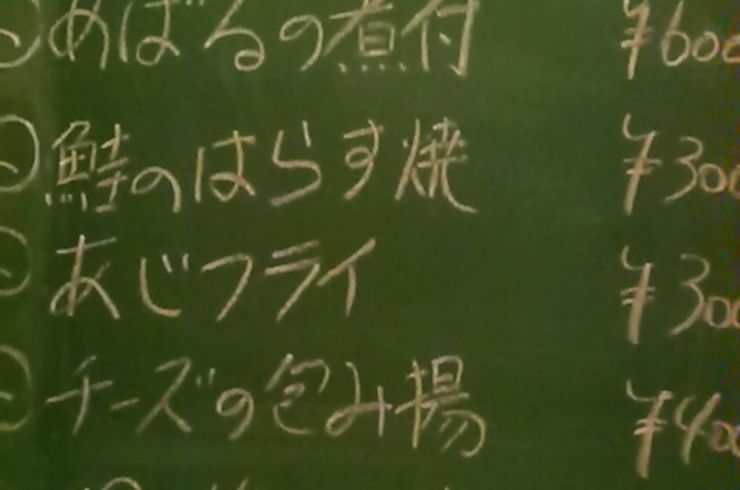 めばるの煮付 ¥600
鮭のはらす焼 ¥300
あじフライ ¥300
チーズの包み揚 ¥400